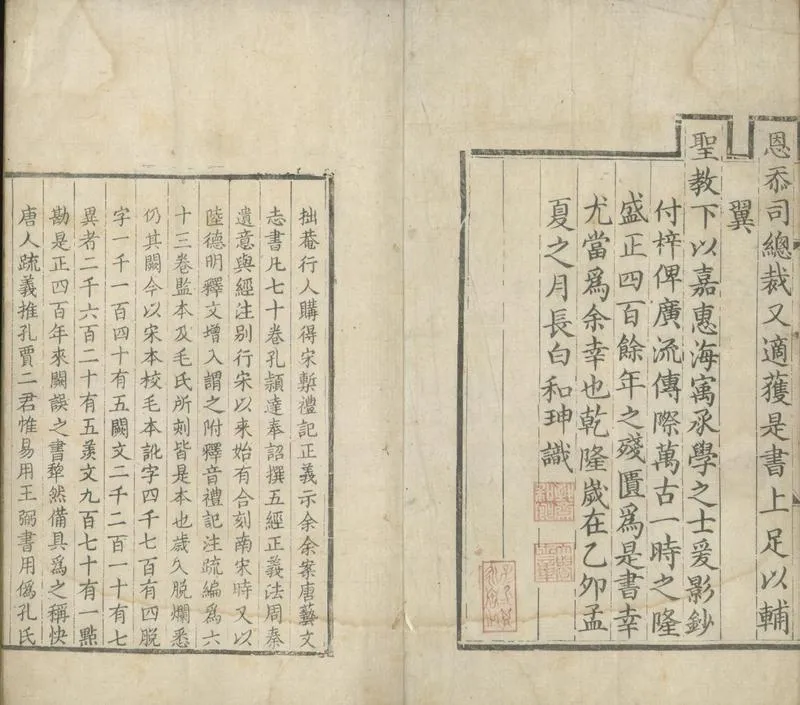 恩忝司總裁又適獲是書上足以輔
翼
聖教下以嘉惠海㝢承學之士爰影鈔
付梓俾廣流傳際萬古一時之隆
盛正四百餘年之殘匱爲是書幸
尤當爲余幸也乾隆歲在乙夘孟
夏之月長白和珅識
拙菴行人購得宋槧禮記正義示余余案唐藝文
志書凡七十卷孔頴達奉詔撰五經正義法周秦
遺意與經注别行宋以来始有合刻南宋時又以
陸德明釋文增入謂之附釋音禮記注疏編爲六
十三卷監本及毛氏所刻皆是本也歲久脫爛悉
仍其闕今以宋本校毛本訛字四千七百有四脫
字一千一百四十有五闕文二千二百一十有七
異者二千六百二十有五羨文九百七十有一點
勘是正四百年來闕誤之書犂然備具爲之稱快
唐人疏義推孔賈二君惟易用王弼書用僞孔氏